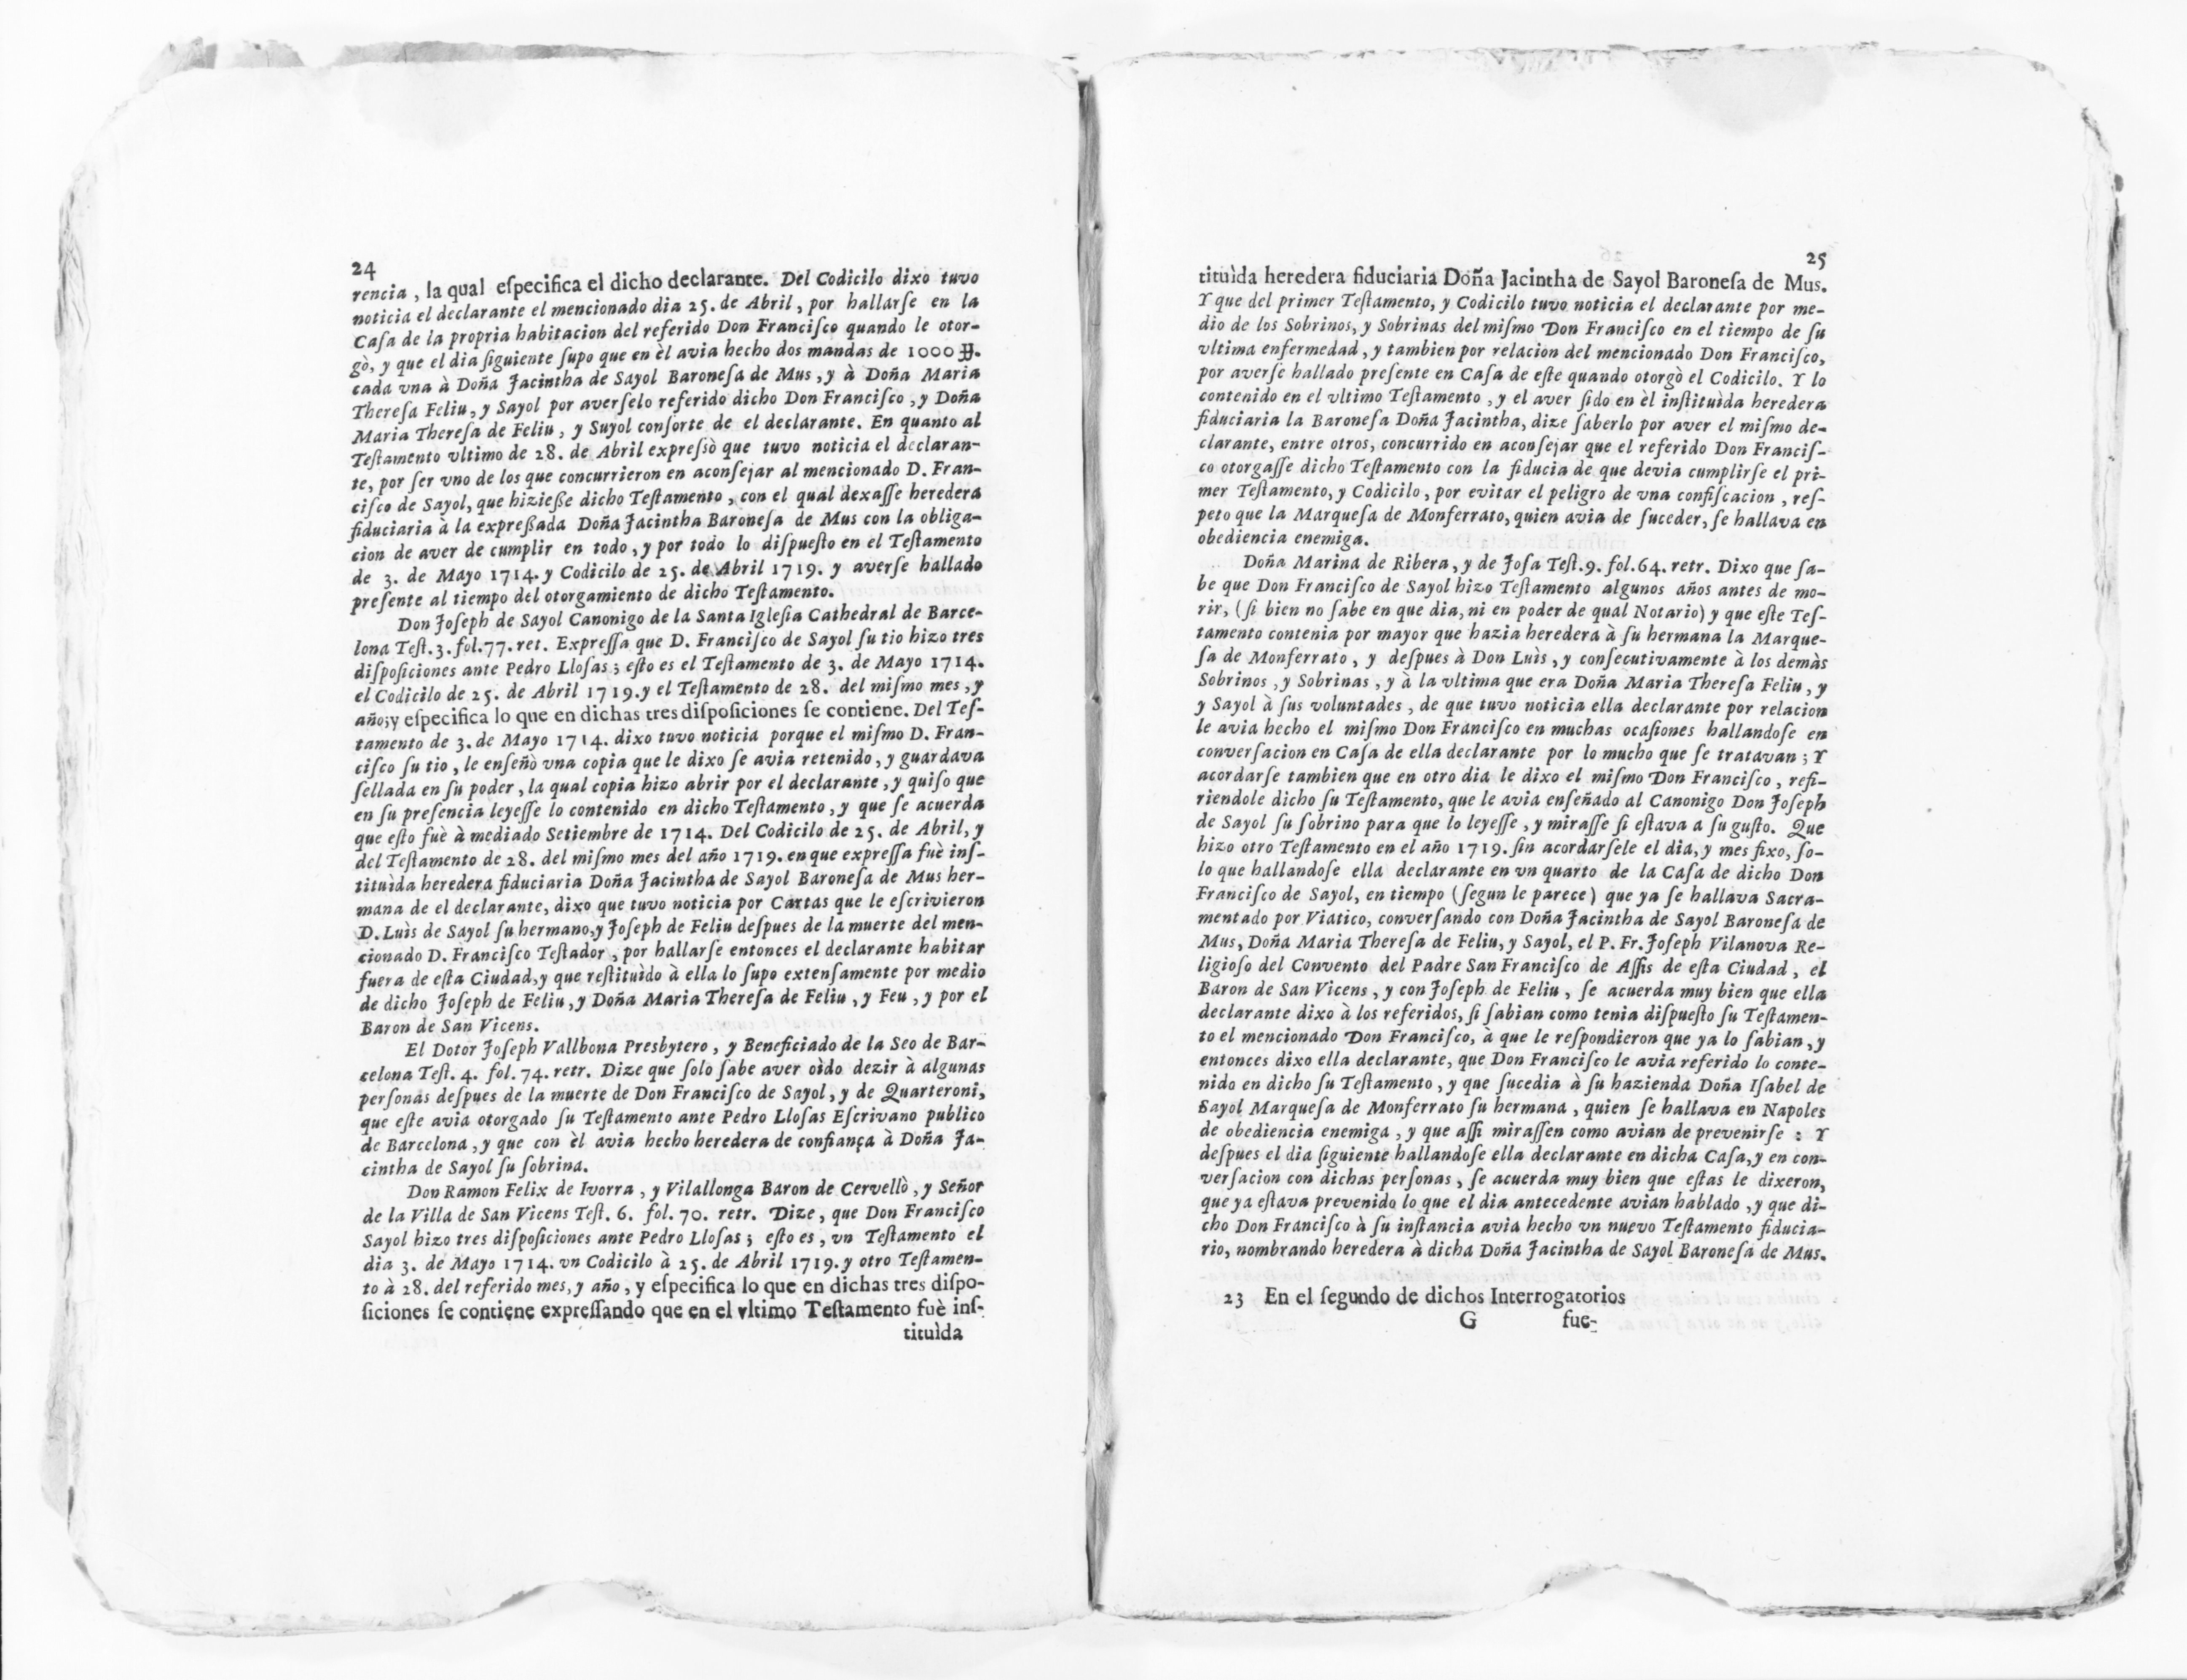 24
rencia, la qual eſpecifica el dicho declarante. Del Codicilo dixo tuvo
noticia el declarante el mencionado dia 25. de Abril, por hallarſe en la
Caſa de la propria habitacion del referido Don Franciſco quando le otor-
gò, y que el dia ſiguiente ſupo que en èl avia hecho dos mandas de 1000 ℔.
cada vna à Doña Jacintha de Sayol Baroneſa de Mus, y à Doña Maria
Thereſa Feliu, y Sayol por averſelo referido dicho Don Franciſco, y Doña
Maria Thereſa de Feliu, y Suyol conſorte de el declarante. En quanto al
Teſtamento vltimo de 28. de Abril expreſsò que tuvo noticia el declaran-
te, por ſer vno de los que concurrieron en aconſejar al mencionado D. Fran-
ciſco de Sayol, que hizieße dicho Teſtamento, con el qual dexaſſe heredera
fiduciaria à la expreßada Doña Jacintha Baroneſa de Mus con la obliga-
cion de aver de cumplir en todo, y por todo lo diſpueſto en el Teſtamento
de 3. de Mayo 1714. y Codicilo de 25. de Abril 1719. y averſe hallado
preſente al tiempo del otorgamiento de dicho Teſtamento.
Don Joſeph de Sayol Canonigo de la Santa Igleſia Cathedral de Barce-
lona Teſt. 3. fol. 77. ret. Expreſſa que D. Franciſco de Sayol ſu tio hizo tres
diſpoſiciones ante Pedro Lloſas; eſto es el Teſtamento de 3. de Mayo 1714.
el Codicilo de 25. de Abril 1719. y el Teſtamento de 28. del miſmo mes, y
año; y eſpecifica lo que en dichas tres diſpoſiciones ſe contiene. Del Teſ-
tamento de 3. de Mayo 1714. dixo tuvo noticia porque el miſmo D. Fran-
ciſco ſu tio, le enſeñò vna copia que le dixo ſe avia retenido, y guardava
ſellada en ſu poder, la qual copia hizo abrir por el declarante, y quiſo que
en ſu preſencia leyeſſe lo contenido en dicho Teſtamento, y que ſe acuerda
que eſto fuè à mediado Setiembre de 1714. Del Codicilo de 25. de Abril, y
del Teſtamento de 28. del miſmo mes del año 1719. en que expreſſa fuè inſ-
tituìda heredera fiduciaria Doña Jacintha de Sayol Baroneſa de Mus her-
mana de el declarante, dixo que tuvo noticia por Cartas que le eſcrivieron
D. Luìs de Sayol ſu hermano, y Joſeph de Feliu deſpues de la muerte del men-
cionado D. Franciſco Teſtador, por hallarſe entonces el declarante habitar
fuera de eſta Ciudad, y que reſtituìdo à ella lo ſupo extenſamente por medio
de dicho Joſeph de Feliu, y Doña Maria Thereſa de Feliu, y Feu, y por el
Baron de San Vicens.
El Dotor Joſeph Vallbona Presbytero, y Beneficiado de la Seo de Bar-
celona Teſt. 4. fol. 74. retr. Dize que ſolo ſabe aver oìdo dezir à algunas
perſonas deſpues de la muerte de Don Franciſco de Sayol, y de Quarteroni,
que eſte avia otorgado ſu Teſtamento ante Pedro Lloſas Eſcrivano publico
de Barcelona, y que con èl avia hecho heredera de confiança à Doña Ja-
cintha de Sayol ſu ſobrina.
Don Ramon Felix de Ivorra, y Vilallonga Baron de Cervellò, y Señor
de la Villa de San Vicens Teſt. 6. fol. 70. retr. Dize, que Don Franciſco
Sayol hizo tres diſpoſiciones ante Pedro Lloſas; eſto es, vn Teſtamento el
dia 3. de Mayo 1714. vn Codicilo à 25. de Abril 1719. y otro Teſtamen-
to à 28. del referido mes, y año, y eſpecifica lo que en dichas tres diſpo-
ſiciones ſe contiene expreſſando que en el vltimo Teſtamento fuè inſ-
tituìda
25
tituìda heredera fiduciaria Doña Jacintha de Sayol Baroneſa de Mus.
Y que del primer Teſtamento, y Codicilo tuvo noticia el declarante por me-
dio de los Sobrinos, y Sobrinas del miſmo Don Franciſco en el tiempo de ſu
vltima enfermedad, y tambien por relacion del mencionado Don Franciſco,
por averſe hallado preſente en Caſa de eſte quando otorgò el Codicilo. Y lo
contenido en el vltimo Teſtamento, y el aver ſido en èl inſtituìda heredera
fiduciaria la Baroneſa Doña Jacintha, dize ſaberlo por aver el miſmo de-
clarante, entre otros, concurrido en aconſejar que el referido Don Franciſ-
co otorgaſſe dicho Teſtamento con la fiducia de que devia cumplirſe el pri-
mer Teſtamento, y Codicilo, por evitar el peligro de vna confiſcacion, reſ-
peto que la Marqueſa de Monferrato, quien avia de ſuceder, ſe hallava en
obediencia enemiga.
Doña Marina de Ribera, y de Joſa Teſt. 9. fol. 64. retr. Dixo que ſa-
be que Don Franciſco de Sayol hizo Teſtamento algunos años antes de mo-
rir, (ſi bien no ſabe en que dia, ni en poder de qual Notario) y que eſte Teſ-
tamento contenia por mayor que hazia heredera à ſu hermana la Marque-
ſa de Monferrato, y deſpues à Don Luìs, y conſecutivamente à los demàs
Sobrinos, y Sobrinas, y à la vltima que era Doña Maria Thereſa Feliu, y
y Sayol à ſus voluntades, de que tuvo noticia ella declarante por relacion
le avia hecho el miſmo Don Franciſco en muchas ocaſiones hallandoſe en
converſacion en Caſa de ella declarante por lo mucho que ſe tratavan; Y
acordarſe tambien que en otro dia le dixo el miſmo Don Franciſco, refi-
riendole dicho ſu Teſtamento, que le avia enſeñado al Canonigo Don Joſeph
de Sayol ſu ſobrino para que lo leyeſſe, y miraſſe ſi eſtava a ſu guſto. Que
hizo otro Teſtamento en el año 1719. ſin acordarſele el dia, y mes fixo, ſo-
lo que hallandoſe ella declarante en vn quarto de la Caſa de dicho Don
Franciſco de Sayol, en tiempo (ſegun le parece) que ya ſe hallava Sacra-
mentado por Viatico, converſando con Doña Jacintha de Sayol Baroneſa de
Mus, Doña Maria Thereſa de Feliu, y Sayol, el P. Fr. Joſeph Vilanova Re-
ligioſo del Convento del Padre San Franciſco de Aſſis de eſta Ciudad, el
Baron de San Vicens, y con Joſeph de Feliu, ſe acuerda muy bien que ella
declarante dixo à los referidos, ſi ſabian como tenia diſpueſto ſu Teſtamen-
to el mencionado Don Franciſco, à que le reſpondieron que ya lo ſabian, y
entonces dixo ella declarante, que Don Franciſco le avia referido lo conte-
nido en dicho ſu Teſtamento, y que ſucedia à ſu hazienda Doña Iſabel de
Sayol Marqueſa de Monferrato ſu hermana, quien ſe hallava en Napoles
de obediencia enemiga, y que aſſi miraſſen como avian de prevenirſe : Y
deſpues el dia ſiguiente hallandoſe ella declarante en dicha Caſa, y en con-
verſacion con dichas perſonas, ſe acuerda muy bien que eſtas le dixeron,
que ya eſtava prevenido lo que el dia antecedente avian hablado, y que di-
cho Don Franciſco à ſu inſtancia avia hecho vn nuevo Teſtamento fiducia-
rio, nombrando heredera à dicha Doña Jacintha de Sayol Baroneſa de Mus.
23 En el ſegundo de dichos Interrogatorios
G fue-